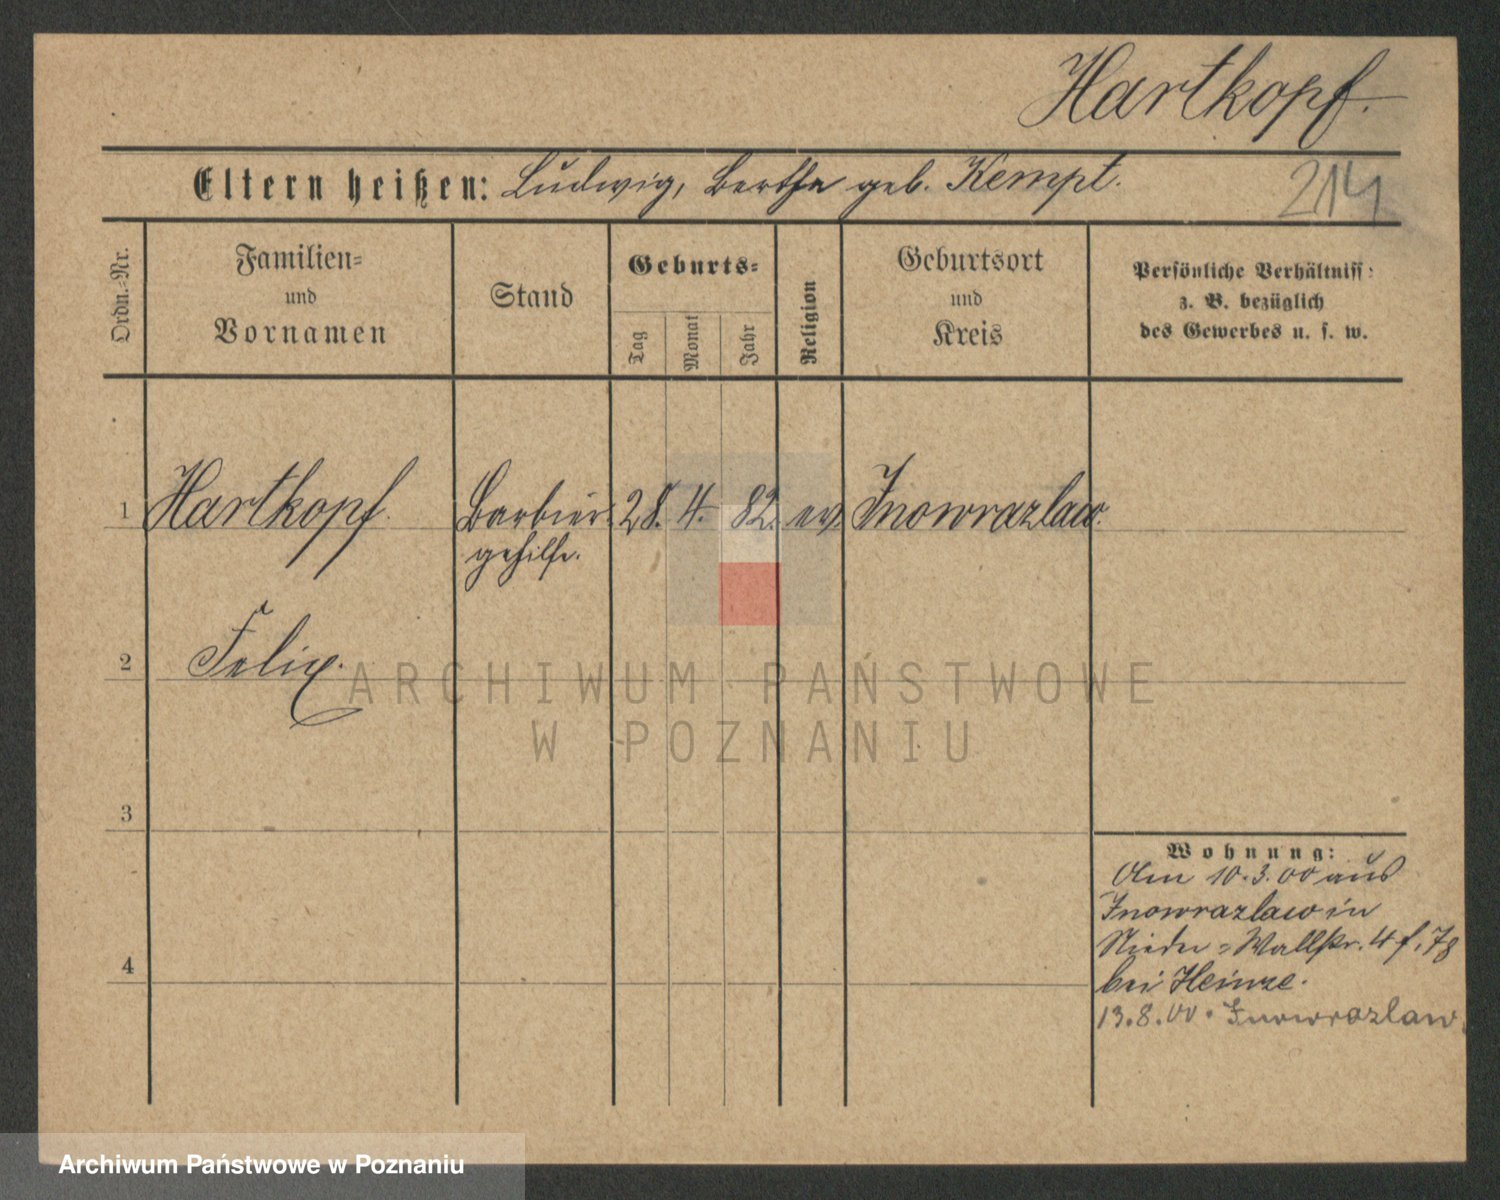 Hartkopf.
Eltern heißen: Ludwig, Bertha geb. Kempt.
214
Ordn.=Nr.
Familien=
und
Vornamen
Stand
Geburts=
Tag
Monat
Jahr
Religion
Geburtsort
und
Kreis
Persönliche Verhältniss:
z. B. bezüglich
des Gewerbes u. s. w.
1 Hartkopf. Barbier 28. 4. 82. ev. Inowrazlaw.
gehilfe.
2 Felix.
3
4
Wohnung:
Am 10.3.00 aus
Inowrazlaw in
Nieder=Wallstr. 4 f. 78
bei Heinze.
13.8.00. Inowrazlaw
ARCHIWUM PAŃSTWOWE
W POZNANIU
Archiwum Państwowe w Poznaniu